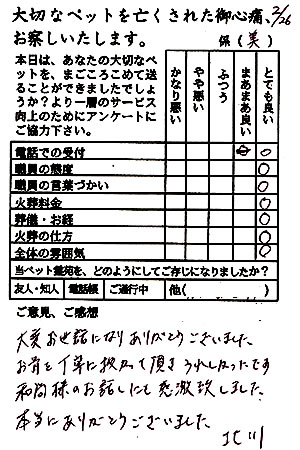 大切なペットを亡くされた御心痛、2/26
お察しいたします。
係(美)
本日は、あなたの大切なペ
ットを、まごころこめて送
ることができましたでしょ
うか?より一層のサービス
向上のためにアンケートに
ご協力下さい。
かなり悪い
やや悪い
ふつう
まあまあ良い
とても良い
電話での受付
職員の態度
職員の言葉づかい
火葬料金
葬儀・お経
火葬の仕方
全体の雰囲気
当ペット霊苑を、どのようにしてご存じになりましたか?
友人・知人 電話帳 ご通行中 他( )
ご意見、ご感想
大変お世話になりありがとうございました
お骨を丁寧に扱かって頂きうれしかったです
和尚様のお話しにも感激致しました。
本当にありがとうございました
北川